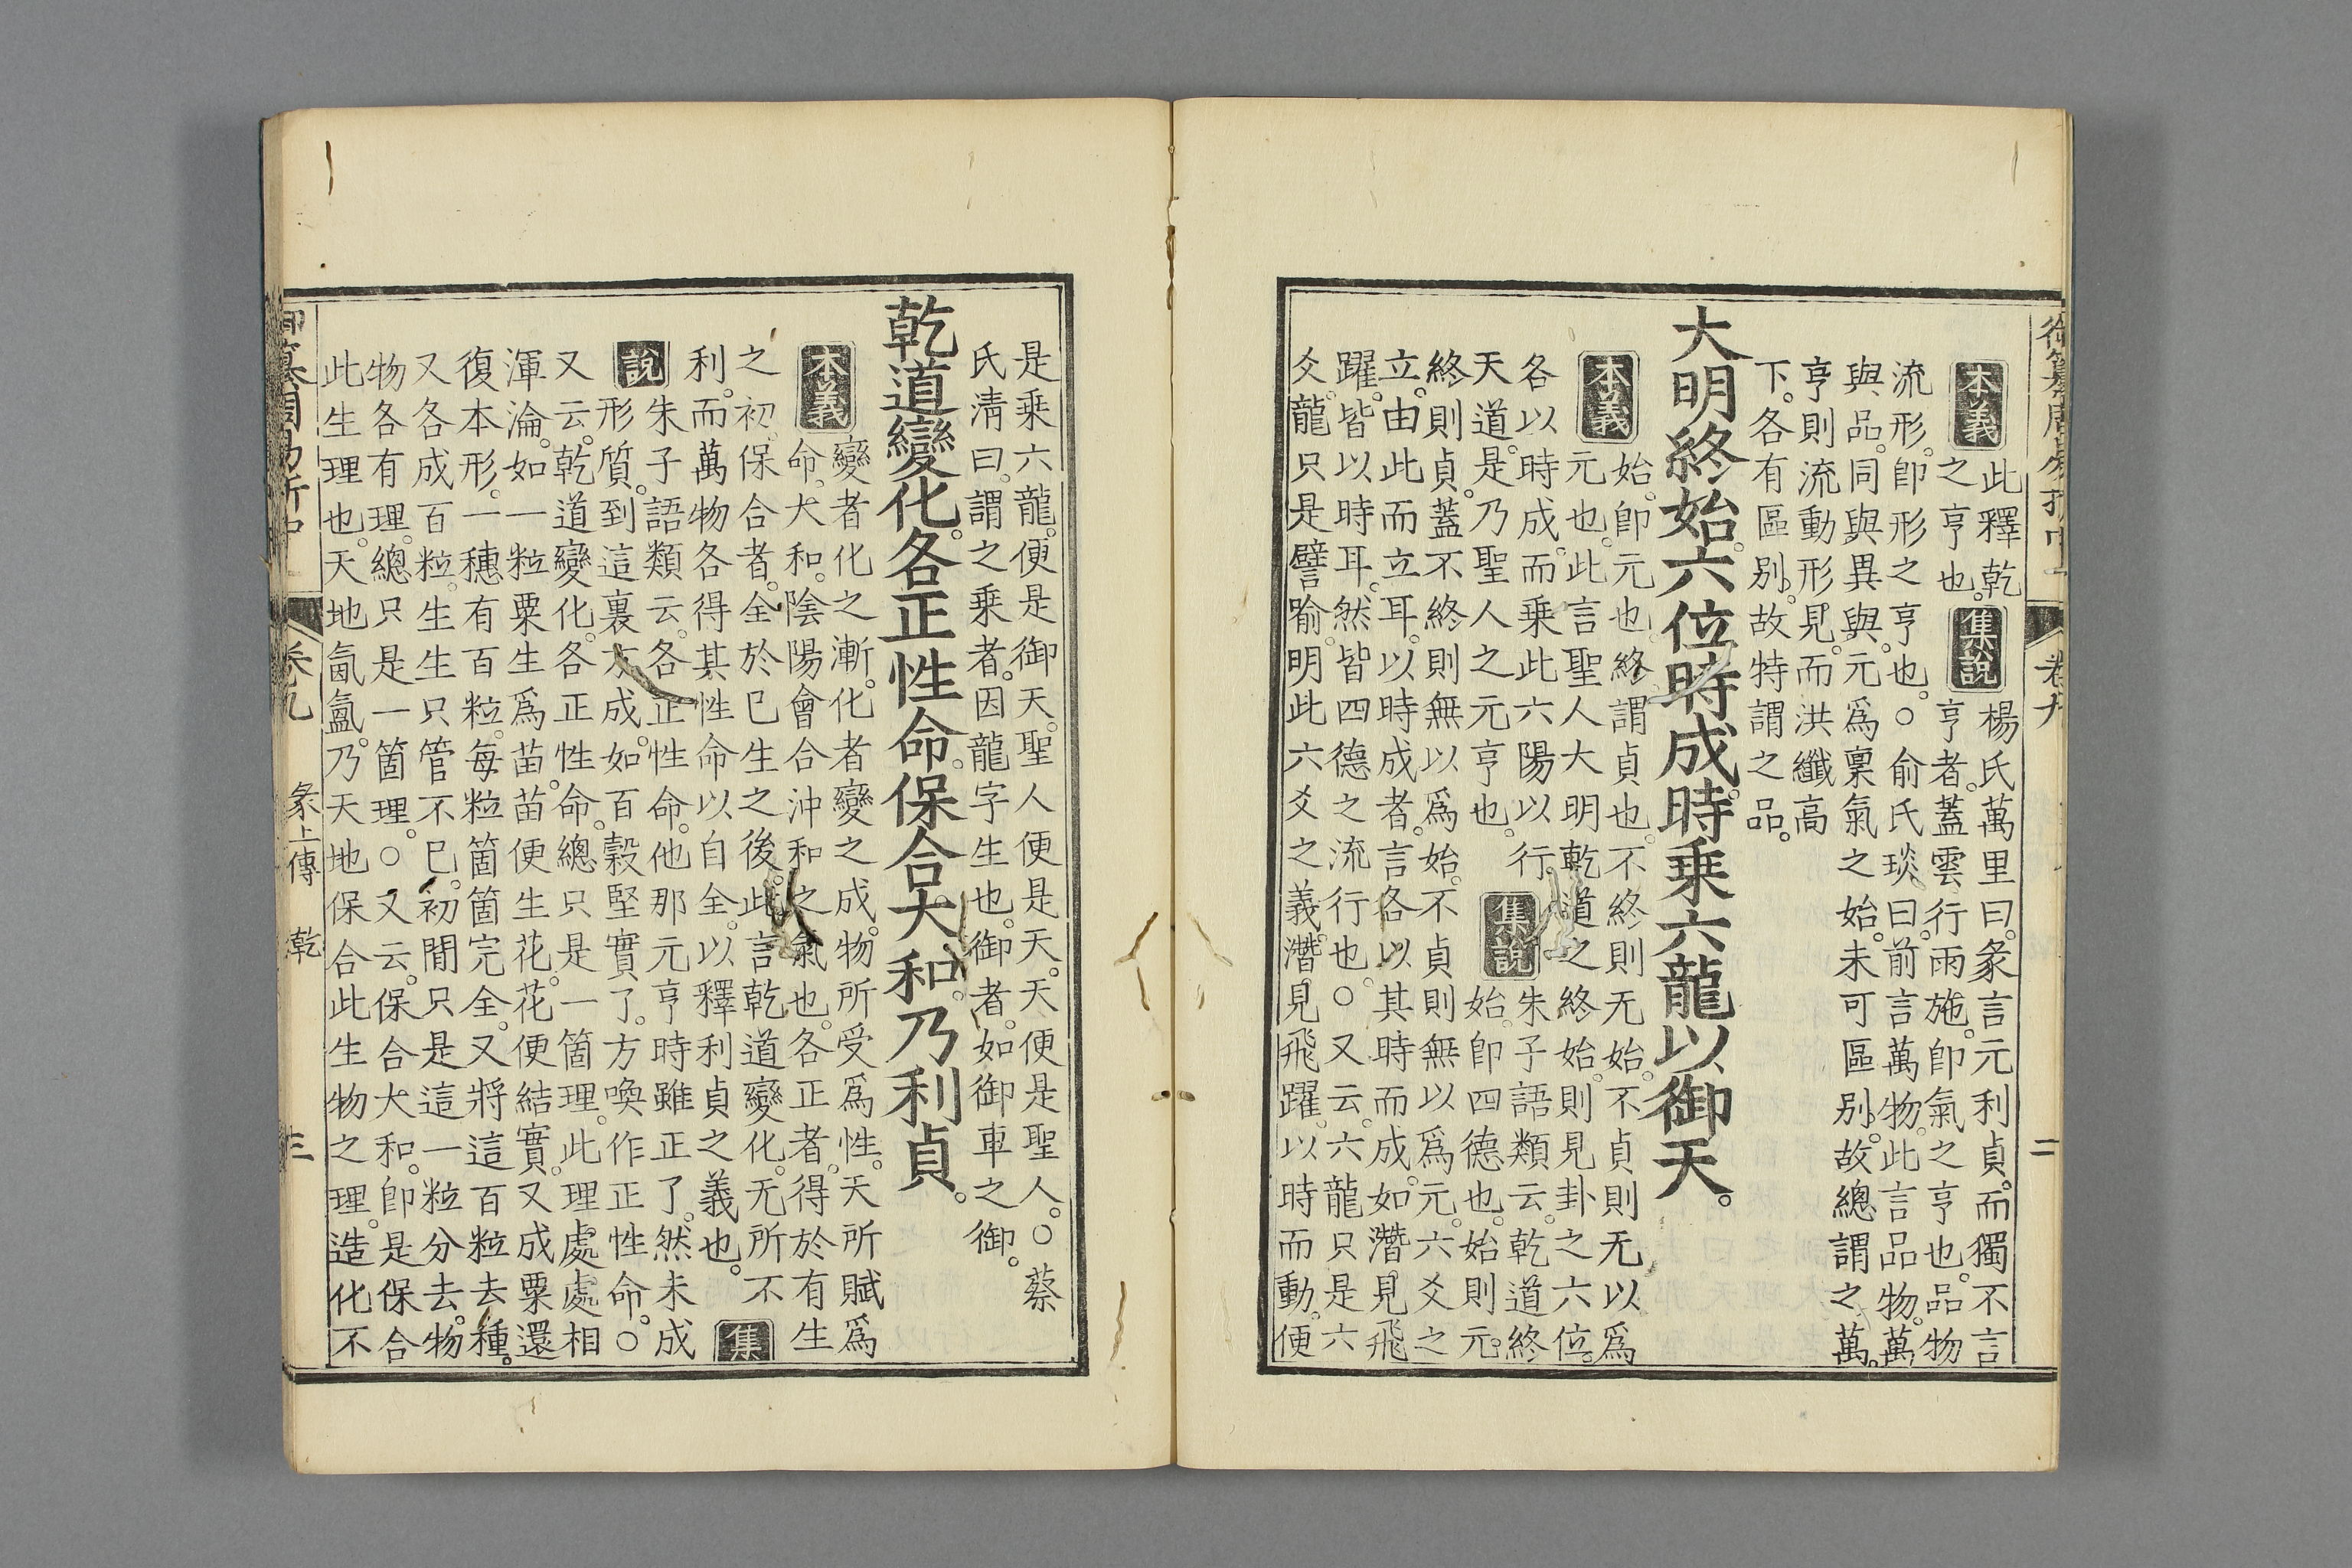 御纂周易折中 卷九 二
本義
此釋乾
之亨也。
集說
楊氏萬里曰。彖言元利貞。而獨不言
亨者。蓋雲行雨施。卽氣之亨也。品物
流形。卽形之亨也。○俞氏琰曰。前言萬物。此言品物。萬
與品。同與異與。元爲稟氣之始。未可區別。故總謂之萬。
亨則流動形見。而洪纖高
下。各有區別。故特謂之品。
大明終始。六位時成。時乘六龍以御天。
本義
始。卽元也。終。謂貞也。不終則无始。不貞則无以爲
元也。此言聖人大明乾道之終始。則見卦之六位。
各以時成。而乘此六陽以行
天道。是乃聖人之元亨也。
集說
朱子語類云。乾道終
始。卽四德也。始則元。
終則貞。蓋不終則無以爲始。不貞則無以爲元。六爻之
立。由此而立耳。以時成者。言各以其時而成。如潛見飛
躍。皆以時耳。然皆四德之流行也。○又云。六龍只是六
爻。龍只是譬喻。明此六爻之義。潛見飛躍。以時而動。便
是乘六龍。便是御天。聖人便是天。天便是聖人。○蔡
氏淸曰。謂之乘者。因龍字生也。御者。如御車之御。
乾道變化。各正性命。保合大和。乃利貞。
本義
變者化之漸。化者變之成。物所受爲性。天所賦爲
命。大和。陰陽會合沖和之氣也。各正者。得於有生
之初。保合者。全於已生之後。此言乾道變化。无所不
利。而萬物各得其性命以自全。以釋利貞之義也。
集
說
朱子語類云。各正性命。他那元亨時雖正了。然未成
形質。到這裏方成。如百穀堅實了。方喚作正性命。○
又云。乾道變化。各正性命。總只是一箇理。此理處處相
渾淪。如一粒粟生爲苗。苗便生花。花便結實。又成粟。還
復本形。一穗有百粒。每粒箇箇完全。又將這百粒去種。
又各成百粒。生生只管不已。初閒只是這一粒分去。物
物各有理。總只是一箇理。○又云。保合大和。卽是保合
此生理也。天地氤氳。乃天地保合此生物之理。造化不
御纂周易折中 卷九 彖上傳 乾 三